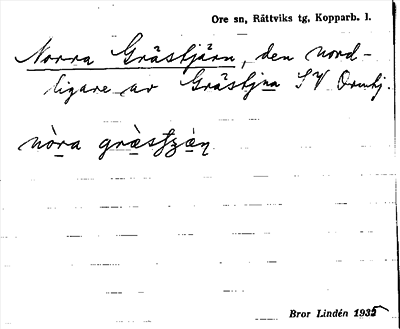 Ore sn, Rättviks tg, Kopparb. l.
Norra Grästjärn, den nord-
ligare av Grästjna SV Ormtj.
nòra gràstjæ̀n
Bror Lindén 1935